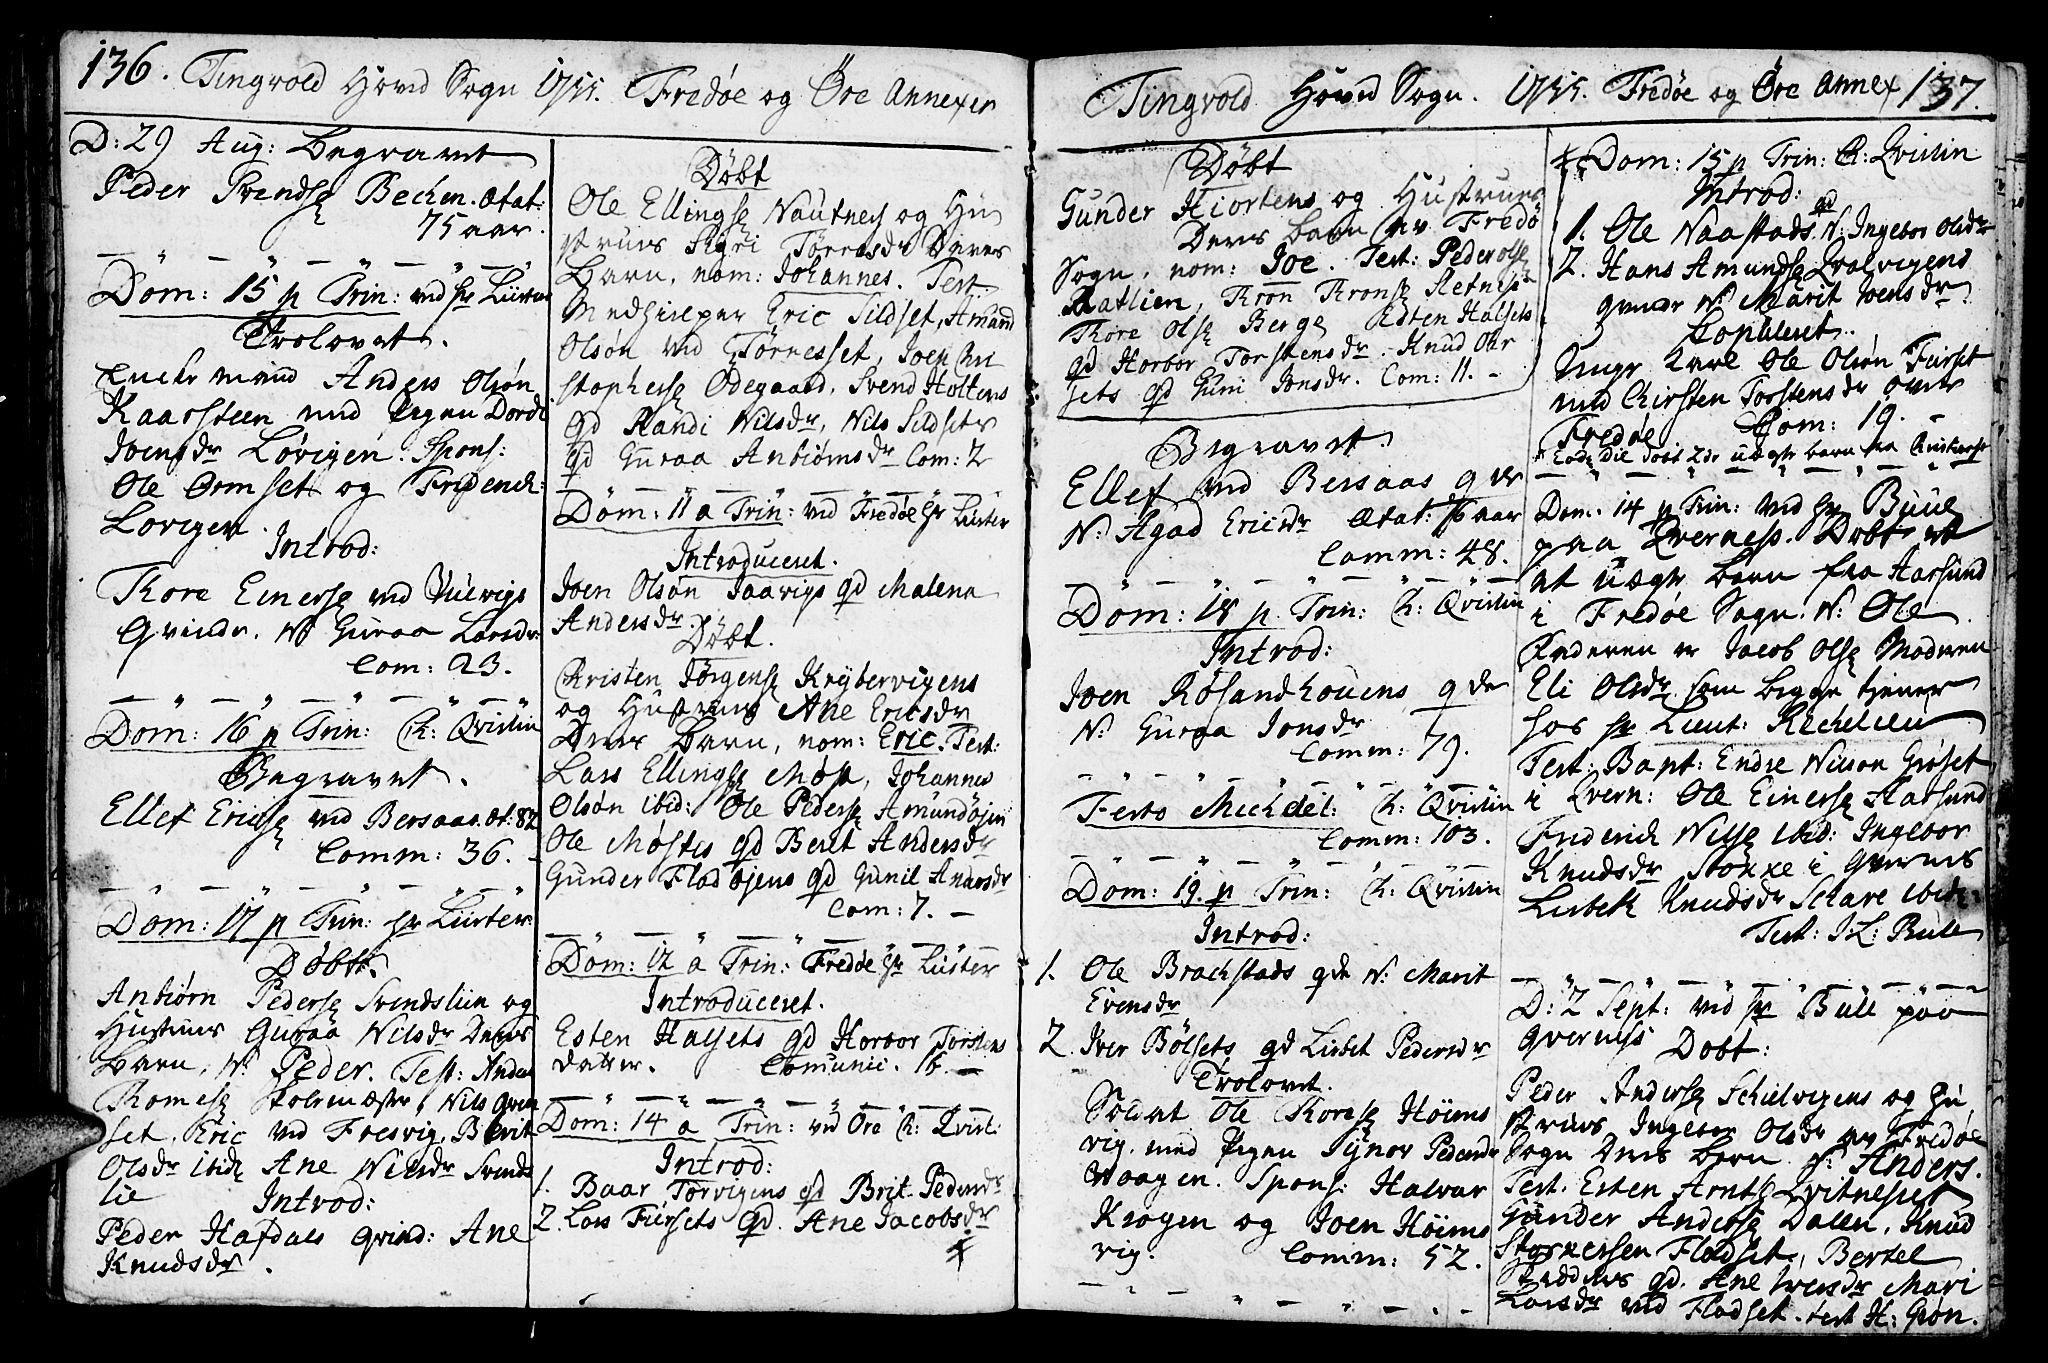 136. Tingvold Hovid Sogn 1755. Fredøe og Øre Annexer
D: 29 Aug: begravet
Peder Svendsø Bechen. Ætat:
75 aar.
Dom: 15 p Trin: ved hr Lüster
Trolovet.
Encke mand Anders Olsøn
Kaarsteen med Pigen Dordi
Joensdr Løvigen. Spons:
Ole Ormset og Friderich
Lovigen.
Introd:
Tore Einersø ved
Qvinde. N: Guraa Larsdr:
Com: 23.
Dom: 16 p Trin: Ch: Qvistin
Begravet.
Ellef Ericsø ved Bersaas. Æt: 82
Comm: 36.
Dom: 17 p Trin: hr Lüster
Døbt.
Anbiørn Pedersø Svendsliin og
Hustrues Guraa Nilsdr Deres
Barn, N: Peder. Test: Anders
Romesø Skolemester, Nils
set. Eric ved Foesvig, Berit
Olsdr ibid Ane Nilsdr Svends
lie
Introd:
Peder Hafdals qvind: Ane
Knudsdr.
Døbt
Ole Ellingsø Nautnes og Hu
struis Sigri Torresdr Deres
Barn, nom: Johannes. Test
Medhielper Eric Sildset, Amund
Olsøn ved Tørnesset, Joen Chri
stophersø Ødegaard, Svend Holtens
qd Randi Nilsdr, Nils Sildsets
qd Guraa Anbiørnsdr Com: 2
Dom: 11 a Trin: ved Fredøe hr Lüster
Introduceret.
Joen Olsøn Jaarigs qd Malena
Andersdr.
Døbt.
Christen Jørgensø Krybervigens
og Hustrues Ane Ericsdr
Deres Barn, nom: Eric. Test:
Lars Ellingsø Møst, Johannes
Olsøn ibid: Ole Pedersø Amundøjen
Ole Møstes qd Beret Andersdr
Gunder Flad øjens qd Gunil Andersdr
Com: 7.
Dom: 12 a Trin: Fredøe hr Lüster
Introduceret.
Esten Halsets qd Horbor Torstens
datter. Comunic. 16.
Dom: 14 a Trin: ved Øre Ch: Qvist:
Introd:
1. Baar Torvigens qd Brit Pedersdr
2. Lars Fiersets qd. Ane Jacobsdr
Tingvold Hovid Sogn. 1755. Fredøe og Øre Annex 137.
Døbt
Gunder Hiortens og Hustrues
Deres barn av Fredø
Sogn, nom: Joe. Test: Peder Olsø
Ratlien, Kron Kronsø
Tore Olsø Berge Esten Halsets
qd Horbor Torstensdr. Knud Oar
sets qd Guni Jonsdr. Com: 11.
Begravet.
Ellef ved Bersaas qde
N: Agad Ericsdr Ætat: aar
Comm: 48.
Dom: 18 p. Trin: Ch: Qvistin
Introd:
Joen Røsandhouens qde
N: Guraa Jonsdr
Comm: 79.
Festo Michael: Ch: Qvistin
Comm: 103.
Dom: 19. p Trin: Ch: Qvistin
Introd:
1. Ole Brachstads qde N: Marit
Evensdr
2. Iver Bølsets qd Lisbet Pedersdr
Trolovet.
Soldat Ole Toresø Høims
vig med Pigen Synov Pedersdr
Waagen. Spons: Halvar
Krogen og Joen Høims
vig. Comm: 52.
Dom: 15 p Trin: Ch: Qvistin
Introd:
1. Ole Naastads qd N: Ingebor Olsdr
2. Hans Amundsø Qvalvigens
qvinde N: Marit Joensdr
Copuleret.
Unge Karl Ole Olsøn Fuirset
med Chirsten Torstensdr
Fredøe Com: 19.
Dom. 14 p Trin: ved hr Buul
paa Qverness. Døbt et
at uægte barn fra Aarsund
i Fredøe Sogn. N: Ole
Faderen er Jacob Olsø Moderen
Eli Olsdr som begge tjener
hos hr Lieut: Richelieu
Test: Bapt: Endre Nilson Grøset
i Qvern: Ole Einersø Aarsund
Friderich Nilsø ibid: Ingebor
Knudsdr Stokke i Qvernes
Lisbeth Knudsdr Schare ibid:
Test: J: L: Bule
D: 2 Sept: ved hr Bule paa
Qverness
Døbt:
Peder Andersø Schielvigens og Hu
struis Ingebor Olsdr av Fredøe
Sogn Deres barn N: Anders.
Test. Esten Arntsø Qvitneset
Gunder Andersø Dalen, Knud
Storkersen Fladset, Bertel
qd. Ane Iversdr Mari
Larsdr ved Fladset. test H: Grøn.